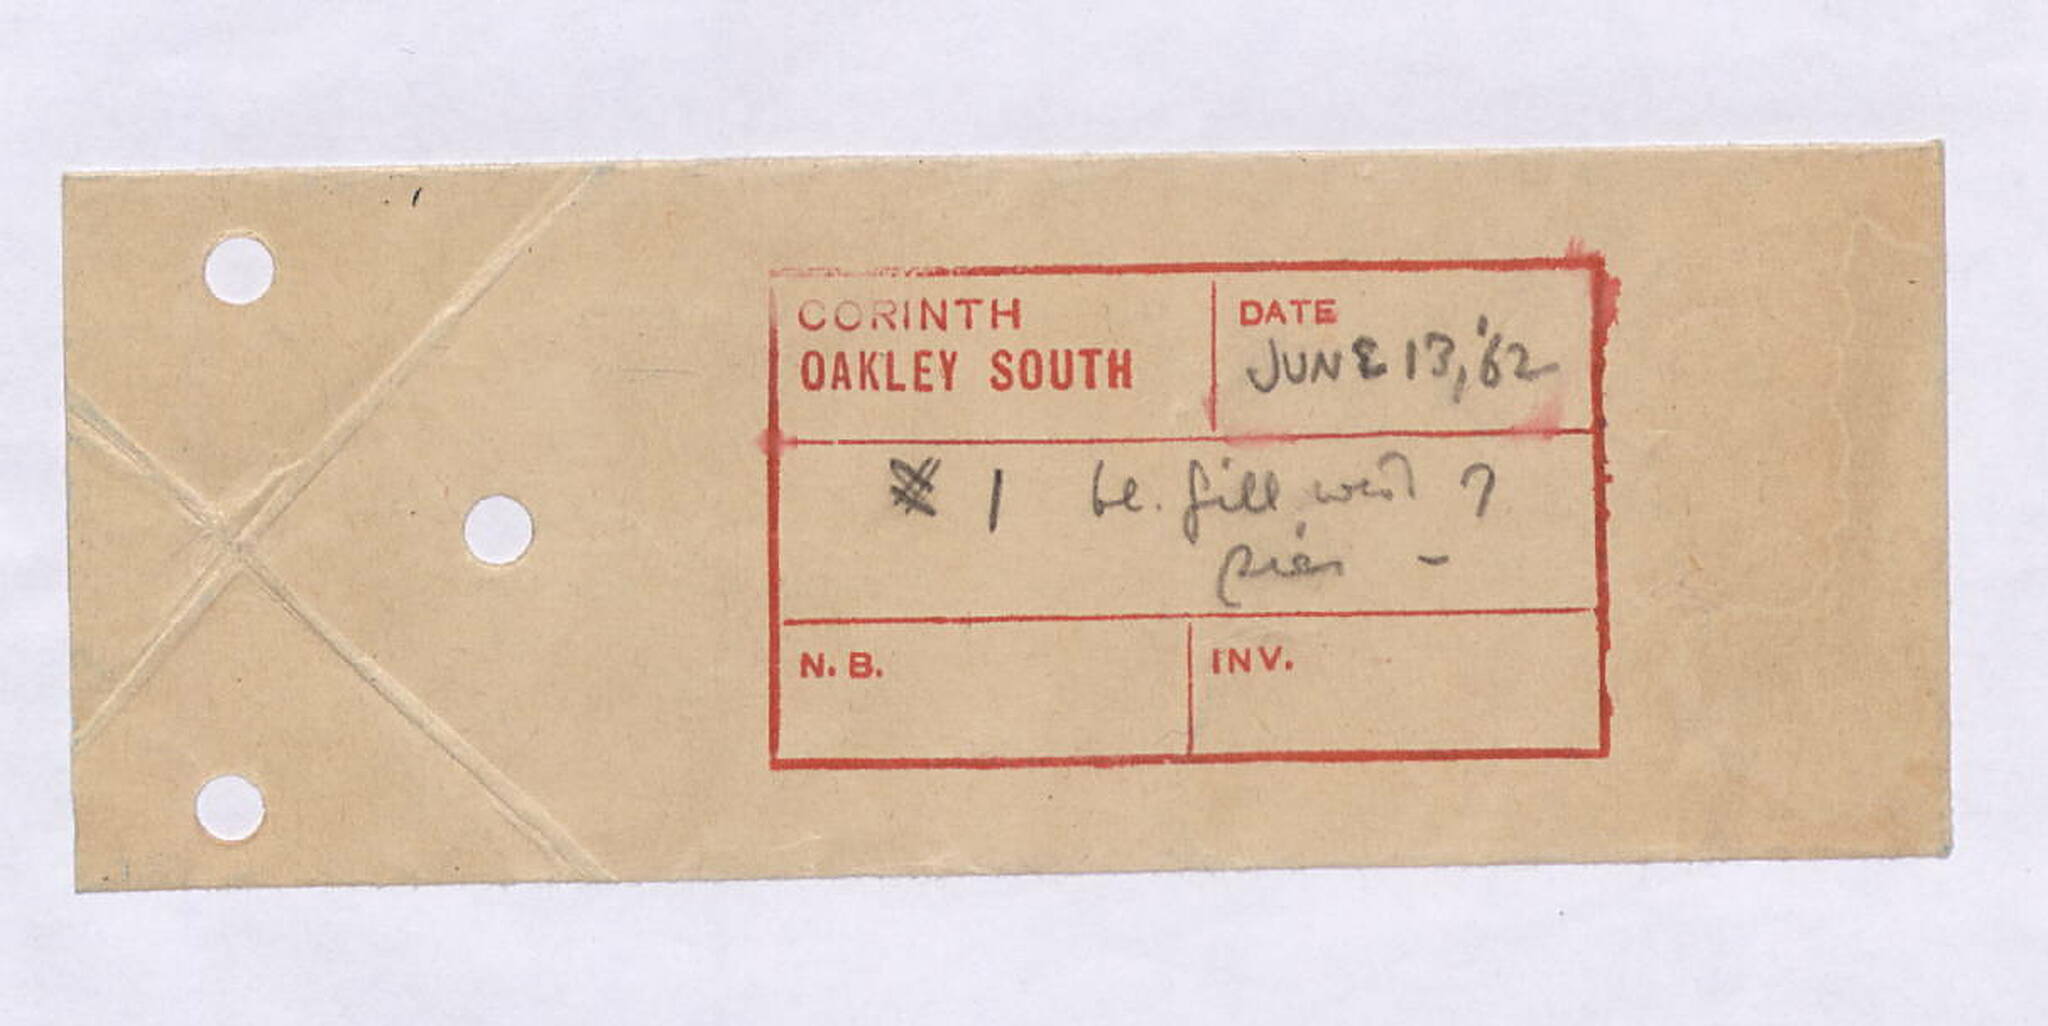 CORINTH
OAKLEY SOUTH
DATE
JUNE 13, '62
# 1 be. fill west ?
pier -
N. B.
INV.